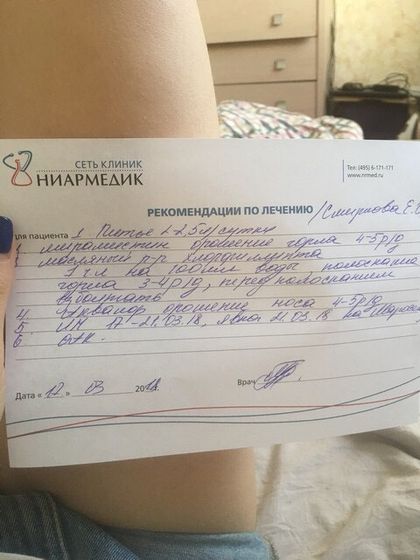 СЕТЬ КЛИНИК
НИАРМЕДИК
Тел.: (495) 6-171-171
www.nrmed.ru
РЕКОМЕНДАЦИИ ПО ЛЕЧЕНИЮ /Смирнова Е.
для пациента 1 Питье 2-2,5л/сутки
2 мирамистин орошение горла 4-5р/д
3 масляный р-р хлорофиллипта
1 чл на 100мл воды полоскание
горла 3-4р/д, перед полосканием
взболтать
4. Аквалор орошение носа 4-5р/д
5. 17-21.03.18, явка 21.03.18 на
6 ОАК.
Дата «17» 03 2018г.
Врач